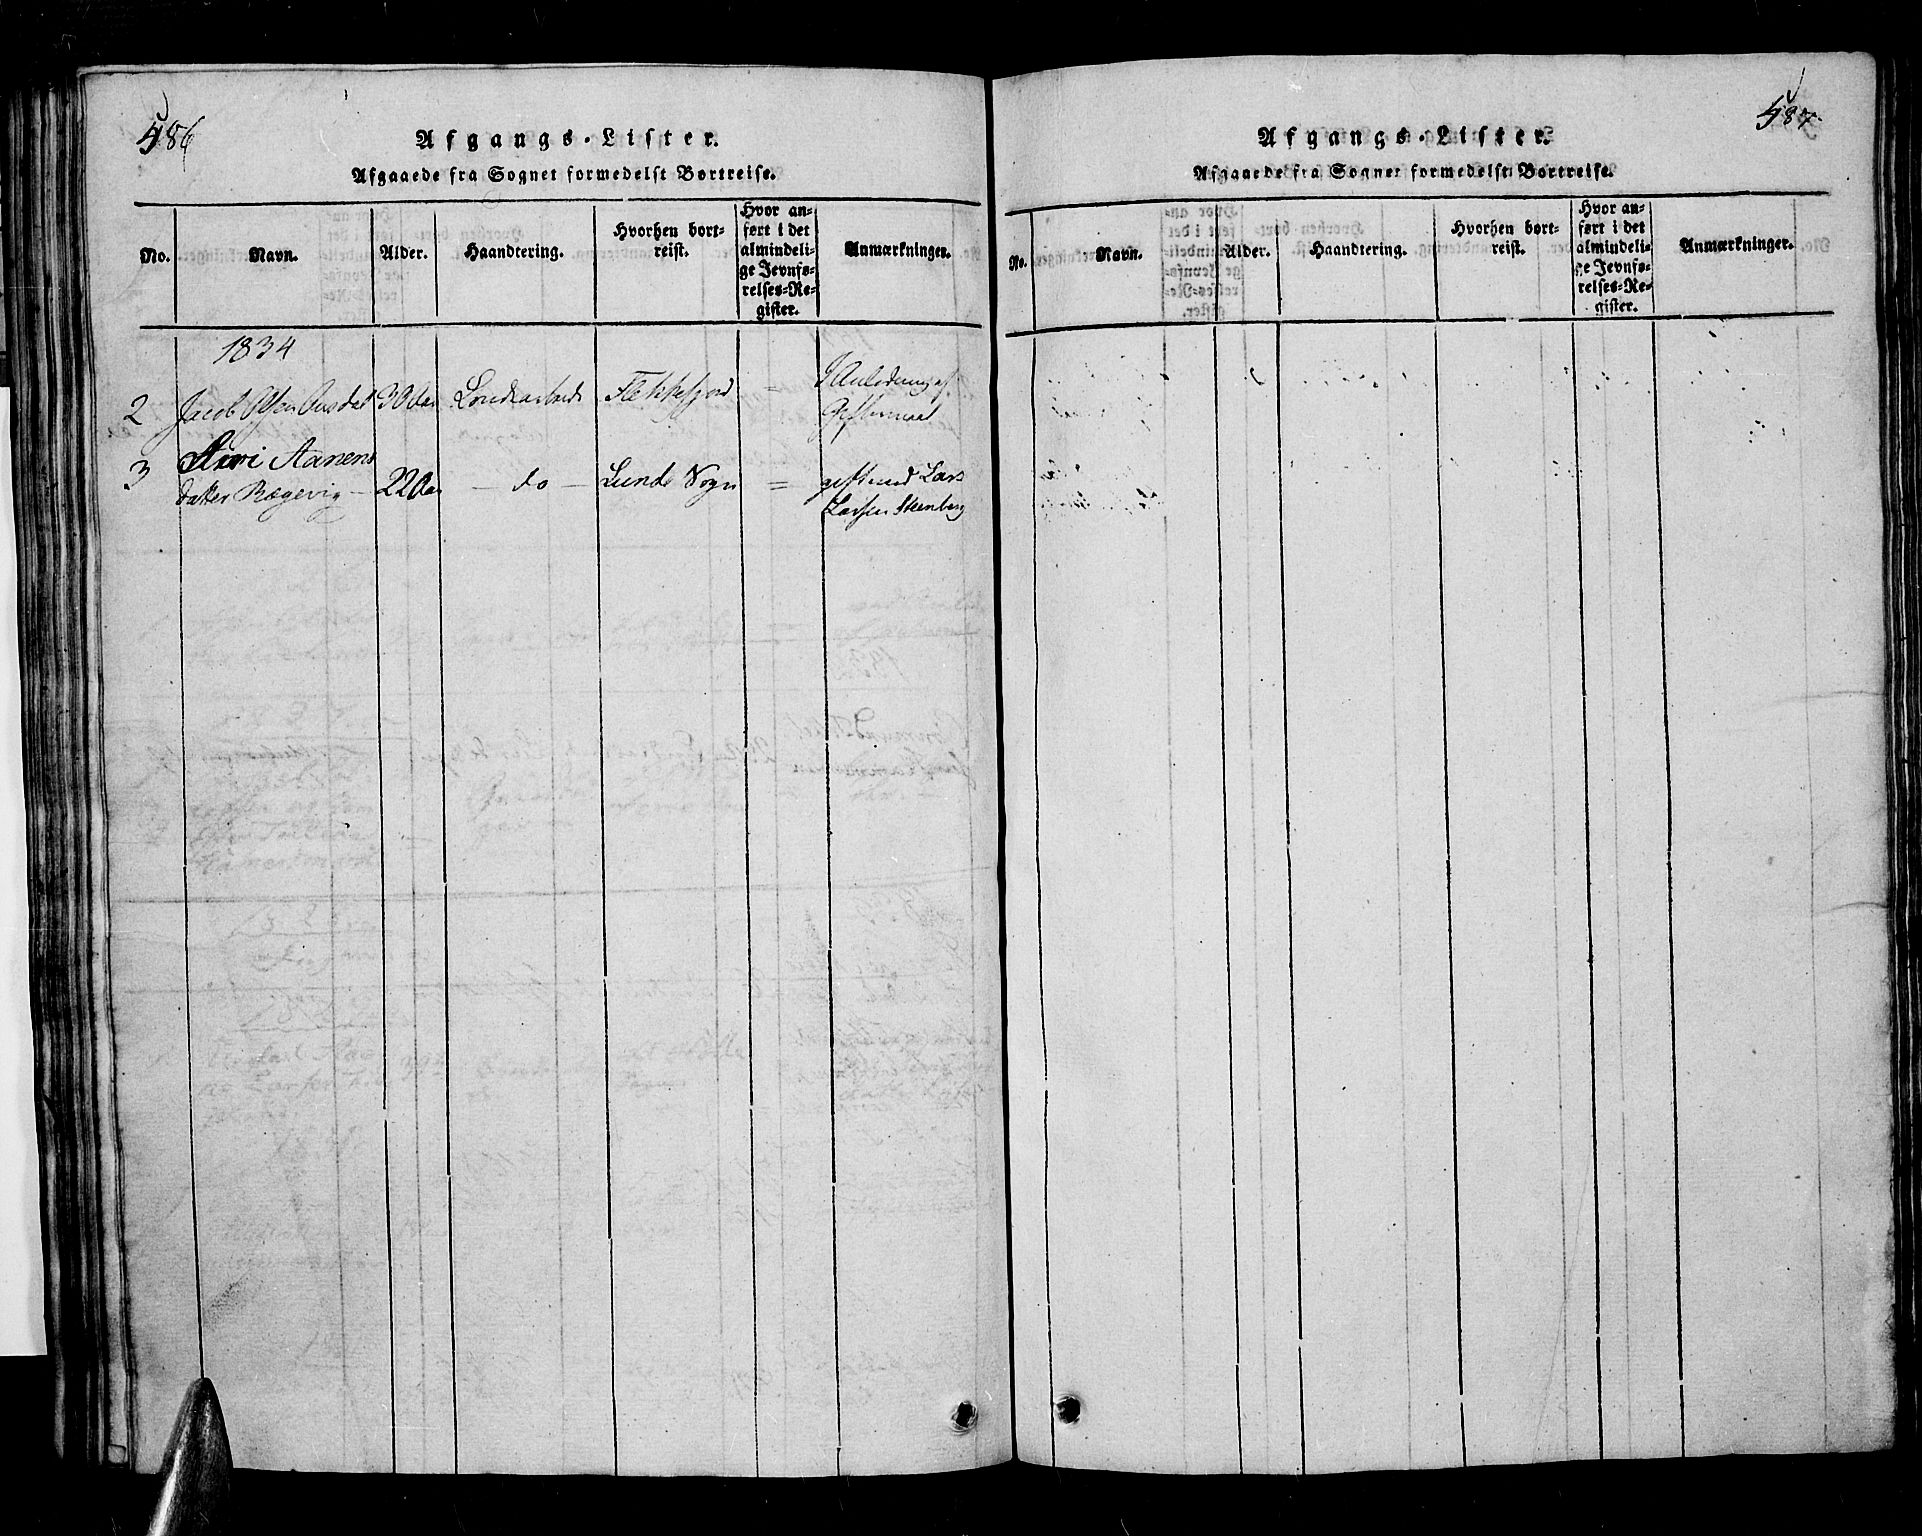 586
Afgangs-Lister.
Afgaaede fra Sognet formedelst Bortreise.
No.
Navn.
Alder.
Haandtering.
Hvorhen bort-
reist.
Hvor an-
ført i det
almindeli-
ge Jevnfø-
relses-Re-
gister.
Anmærkninger.
1834
2 Jacob Olsen 30 Aar Flekkefjord = I Anledning af
Giftermaal
3 Siri Aanens
datter Bøgevig - 22 Aar - do - Lunde Sogn = gift med Lars
Larsen Steenberg
587
Afgangs-Lister.
Afgaaede fra Sognet formedelst Bortreise.
No.
Navn.
Alder.
Haandtering.
Hvorhen bort-
reist.
Hvor an-
ført i det
almindeli-
ge Jevnfø-
relses-Re-
gister.
Anmærkninger.